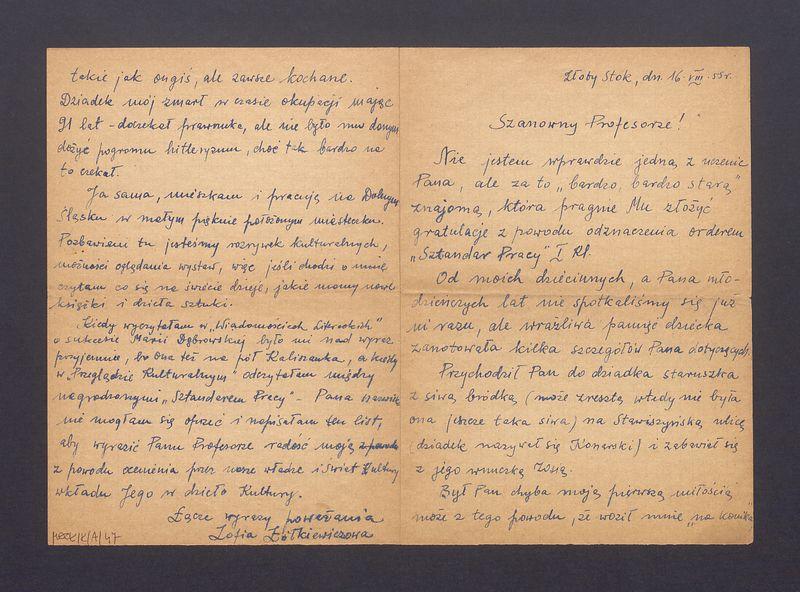 Złoty Stok, dn. 16.VIII.55r.
Szanowny Profesorze!
Nie jestem wprawdzie jedną z uczenic
Pana, ale za to „bardzo, bardzo starą"
znajomą, która pragnie Mu złożyć
gratulacje z powodu odznaczenia orderem
„Sztandar Pracy" I kl.
Od moich dziecinnych, a Pana mło-
dzieńczych lat nie spotkaliśmy się już
ni razu, ale wrażliwa pamięć dziecka
zanotowała kilka szczegółów Pana dotyczących.
Przychodził Pan do dziadka staruszka
z siwą bródką (może zresztą wtedy nie była
ona jeszcze taka siwa) na Stawiszyńską ulicę
(dziadek nazywał się Konarski) i zabawiał się
z jego wnuczką Zosią.
Był Pan chyba moją pierwszą miłością
może z tego powodu, że woził mnie „na koniku"
takie jak ongiś, ale zawsze kochane.
Dziadek mój zmarł w czasie okupacji mając
91 lat – doczekał prawnuka, ale nie było mu danym
dożyć pogromu hitleryzmu, choć tak bardzo na
to czekał.
Ja sama, mieszkam i pracuję na Dolnym
Śląsku w małym pięknie położonym miasteczku.
Pozbawieni tu jesteśmy rozrywek kulturalnych,
możności oglądania wystaw, więc jeśli chodzi o mnie
czytam co się na świecie dzieje, jakie mamy nowe
książki i dzieła sztuki.
Kiedy wyczytałam w „Wiadomościach Literackich"
o sukcesie Marii Dąbrowskiej było mi nad wyraz
przyjemnie, bo ona też na pół Kaliszanka, a kiedy
w „Przeglądzie Kulturalnym" odczytałam między
nagrodzonymi „Sztandarem Pracy" – Pana nazwisko
nie mogłam się oprzeć i napisałam ten list,
aby wyrazić Panu Profesorze radość moją
z powodu ocenienia przez nasze władze i Świat Kultury
wkładu Jego w dzieło Kultury.
Łączę wyrazy poważania
Zofia Żółkiewiczowa